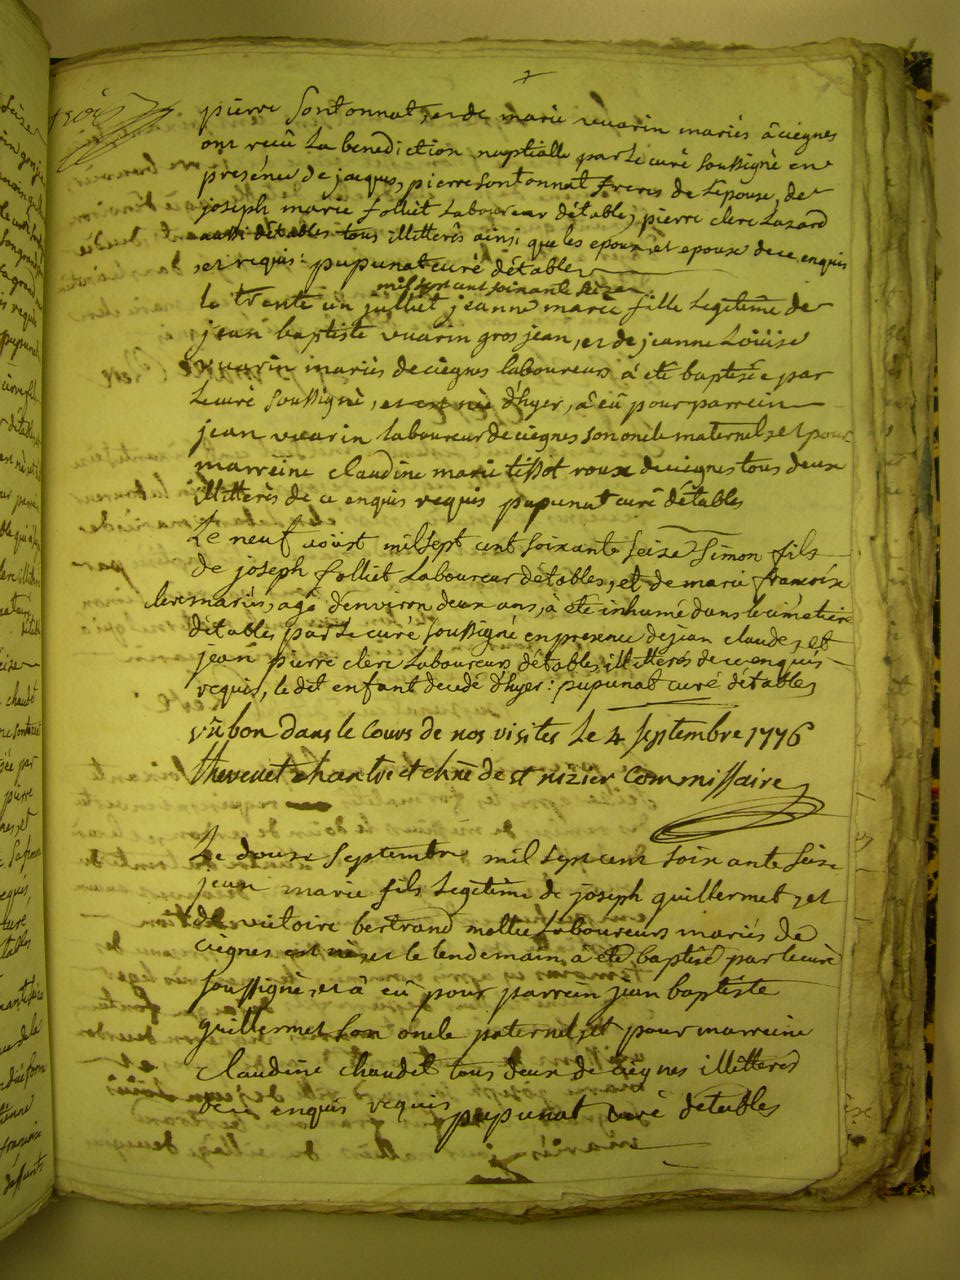 trois
pierre Sontonnat, et de marie vuarin mariés à ciégnes
ont reçû La benediction nuptialle par Le curé soussigné en
présence de jacques, pierre Sontonnat freres de L'épouse, de
joseph marie folliet Laboureur détables, pierre clerc Lazard
aussi détables tous illitterés ainsi que les epoux et epouse de ce enquis
et requis: pupunat curé détables
mil sept cent soixante seize
le trente un juillet jeanne marie fille Legitime de
jean baptiste vuarin gros jean, et de jeanne Loüise
vuarin mariés de ciégnes laboureurs à eté baptisée par
Le curé soussigné, et est née d'hyer, à eû pour parrein
jean vuarin laboureur de ciégnes son oncle maternel, et pour
marreine claudine marie tissot roux de ciégnes tous deux
illitterés de ce enquis requis pupunat curé détables
Le neuf aoüst mil sept cent soixante seize Simon fils
de joseph folliet Laboureur détables, et de marie francoise
clerc mariés, agé d'environ deux ans, à eté inhumé dans le cimetiere
détables par Le curé soussigné en presence de jean claude, et
jean pierre clerc Laboureurs détables illitterés de ce enquis
requis, le dit enfant decedé d'hyer: pupunat curé détables
vû bon dans le cours de nos visites Le 4 septembre 1776
thevenet chantre et chne de st nizier Commissaire
Le douze septembre mil sept cent soixante seize
jean marie fils Legitime de joseph guillermet, et
de victoire bertrand mollie Laboureurs mariés de
ciegnes est né, et le lendemain à eté baptisé par le curé
soussigné, et à eû pour parrein jean baptiste
guillermet son oncle paternel, et pour marreine
claudine chaudet tous deux de ciegnes illitterés
de ce enquis requis pupunat curé détables